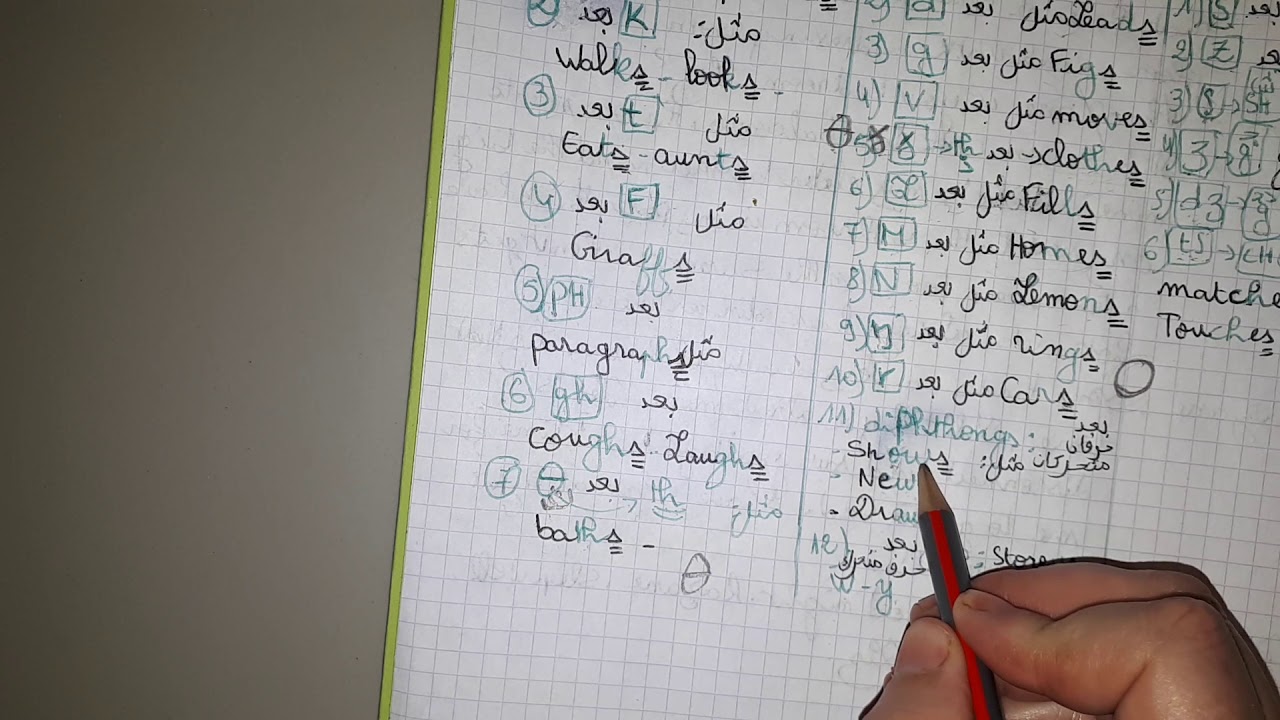 2 بعد K مثل:
Walks - looks -
3 بعد t مثل
Eats - aunts
4 بعد F مثل
Giraffs
5 PH بعد
paragraphs مثل
6 gh بعد
Coughs - Laughs
7 θ بعد th مثل:
baths -
θ
2) d بعد مثل Leads
3) g بعد مثل Figs
4) V بعد مثل moves
5) th بعد clothes
6) L بعد مثل Fills
7) M بعد مثل Homes
8) N بعد مثل Lemons
9) بعد مثل rings
10) r بعد مثل Cars
11) diphthongs: بعد
حرفان
- Shows متحركان مثل:
- New
- Draw
12) بعد
حرف متحرك : Store
- y
1) S بعد
2) Z بعد
3) S → SH
4) 3 →
5) d3 →
6) tS → CH
matche
Touches